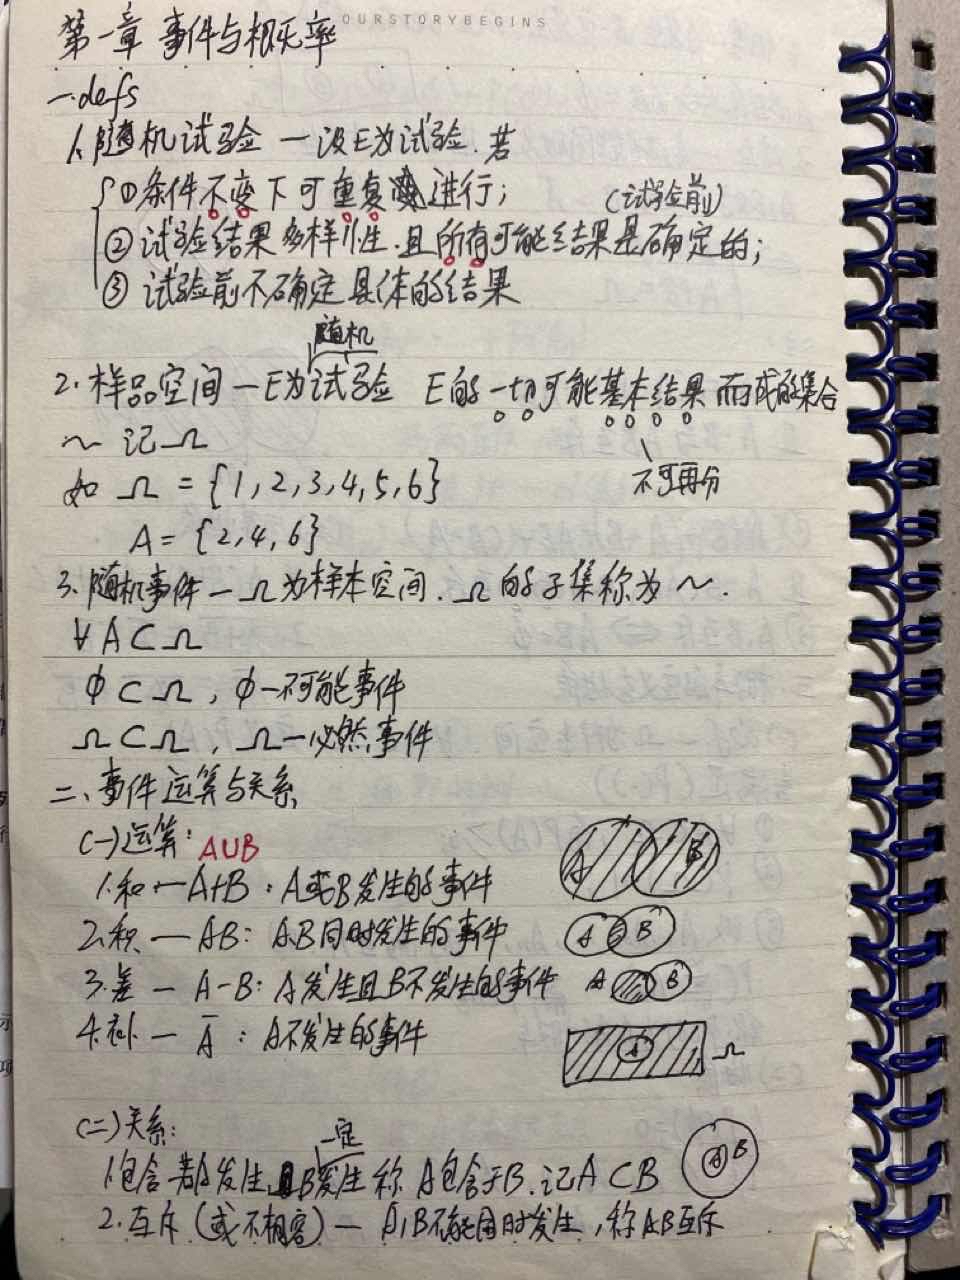 OURSTORYBEGINS
第一章 事件与概率
一.defs
1.随机试验 — 设E为试验.若
①条件不变下可重复进行;
(试验前)
②试验结果多样性.且所有可能结果是确定的;
③试验前不确定具体的结果
随机
2.样品空间 — E为试验 E的一切可能基本结果而成的集合
~ 记Ω
不可再分
如 Ω = {1,2,3,4,5,6}
A = {2,4,6}
3.随机事件 — Ω为样本空间.Ω的子集称为~.
∀A⊂Ω
ϕ⊂Ω, ϕ—不可能事件
Ω⊂Ω, Ω—必然事件
二、事件运算与关系
(一)运算: A∪B
1.和 — A+B: A或B发生的事件
A B
2.积 — AB: A.B同时发生的事件
A B
3.差 — A-B: A发生且B不发生的事件
A B
4.补 — Ā: A不发生的事件
A Ω
(二)关系:
一定
1.包含 若A发生,B发生 称 A包含于B.记A⊂B
A B
2.互斥(或不相容) — A,B不能同时发生,称AB互斥